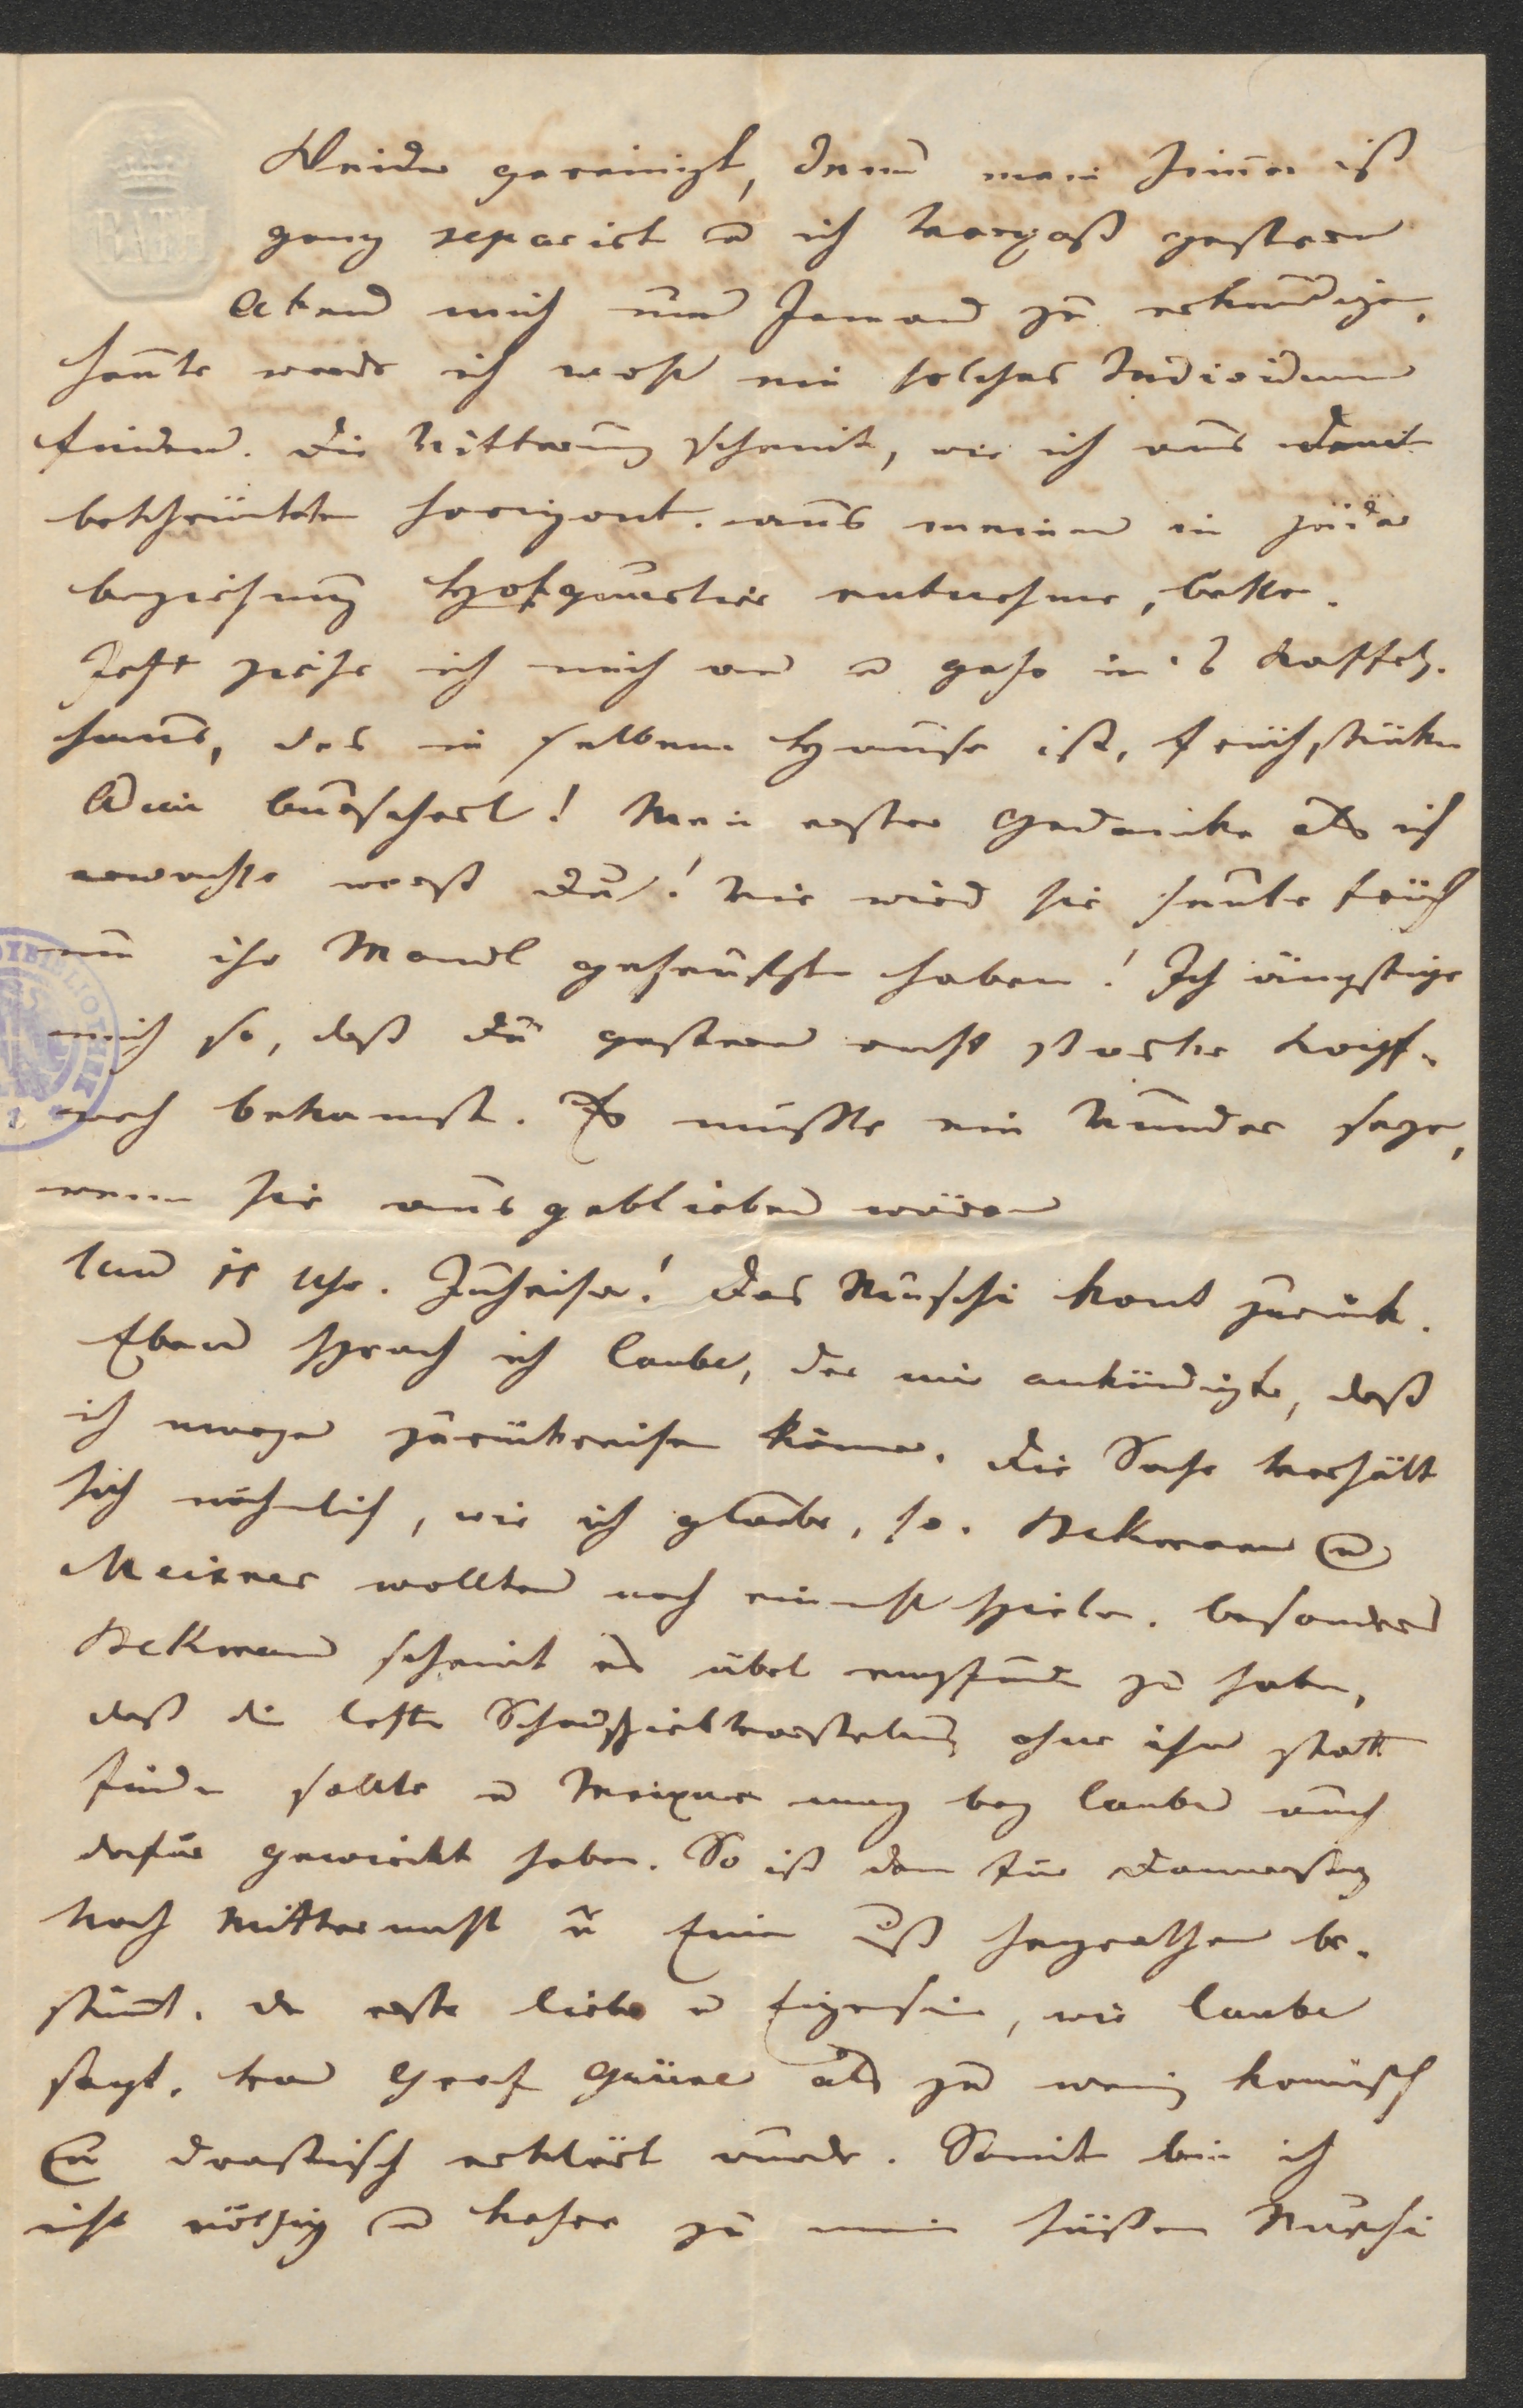 BATH
Kleider gereinigt, denn mein Zimer ist
ganz separirt u ich vergaß gestern
Abend mich um Jemand zu erkundigen,
heute werde ich wohl ein solches Individuum
finden. Die Witterung scheint, wie ich aus dem
beschränkten Horizont aus meinem in jeder
Beziehung Hofquartier entnehme, besser.
Jetzt ziehe ich mich an u gehe in's Kaffeh-
haus, das in selben Hause ist, frühstücken
Mein erster Gedanke als ich
erwachte warst Du! Wie wird sie heute früh
um ihr Mandl geseufzt haben! Ich ängstige
mich so, daß Du gestern recht starke Kopf-
weh bekamst. Es müßte ein Wunder sage,
wenn sie ausgeblieben wären
1 Uhr. Juheisa! Das Muschi komt zurück.
Eben sprach ich Laube, der mir ankündigte, daß
ich morgen zurückreisen könne. Die Sache verhält
sich nähmlich, wie ich glaube, so. Bekmann u
Meixner wollten noch einmahl spielen. besonders
Bekman scheint es übel empfunden zu haben,
daß die letzte Schauspielvorstelung ohne ihn statt
finden sollte u Meixner mag bey Lauben auch
dafür gewirkt haben. So ist den für Donnerstag
Nach Mitternacht u Einer muß heyrathen be-
stimt. da erste Liebe u Eigensin, wie Laube
sagt, von Graf Grüne als zu wenig komisch
u drastisch erklärt wurde. Somit bin ich
nicht nöthig u kehre zu mein süßen Muschi